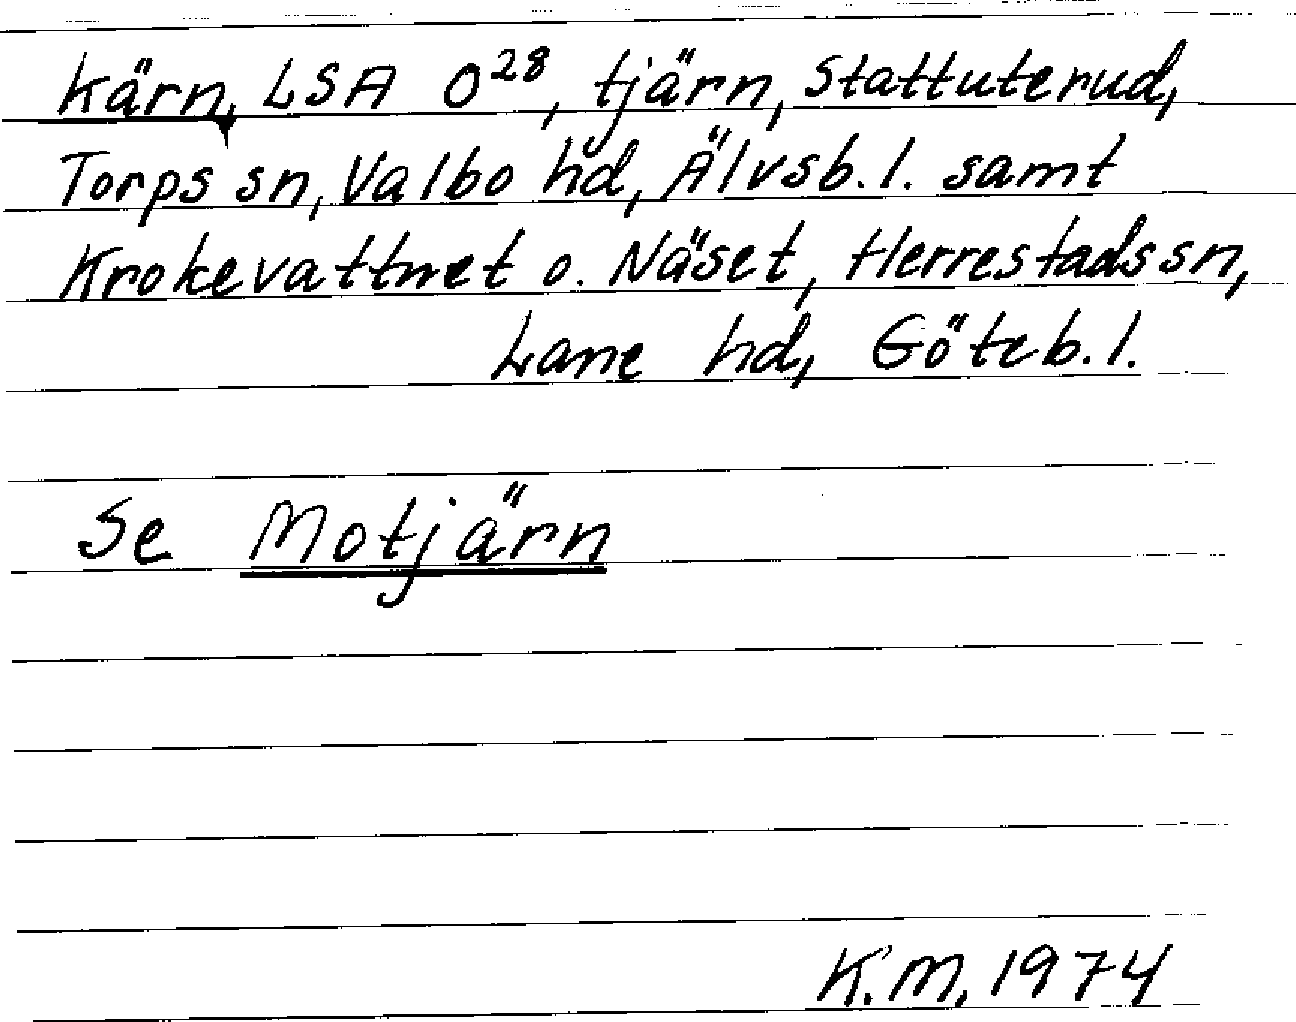 Kärn, LSA O28, tjärn, Stattuterud,
Torps sn, Valbo hd, Älvsb. l. samt
Krokevattnet o. Näset, Herrestads sn,
Lane hd, Göteb. l.
Se Motjärn
K.M. 1974